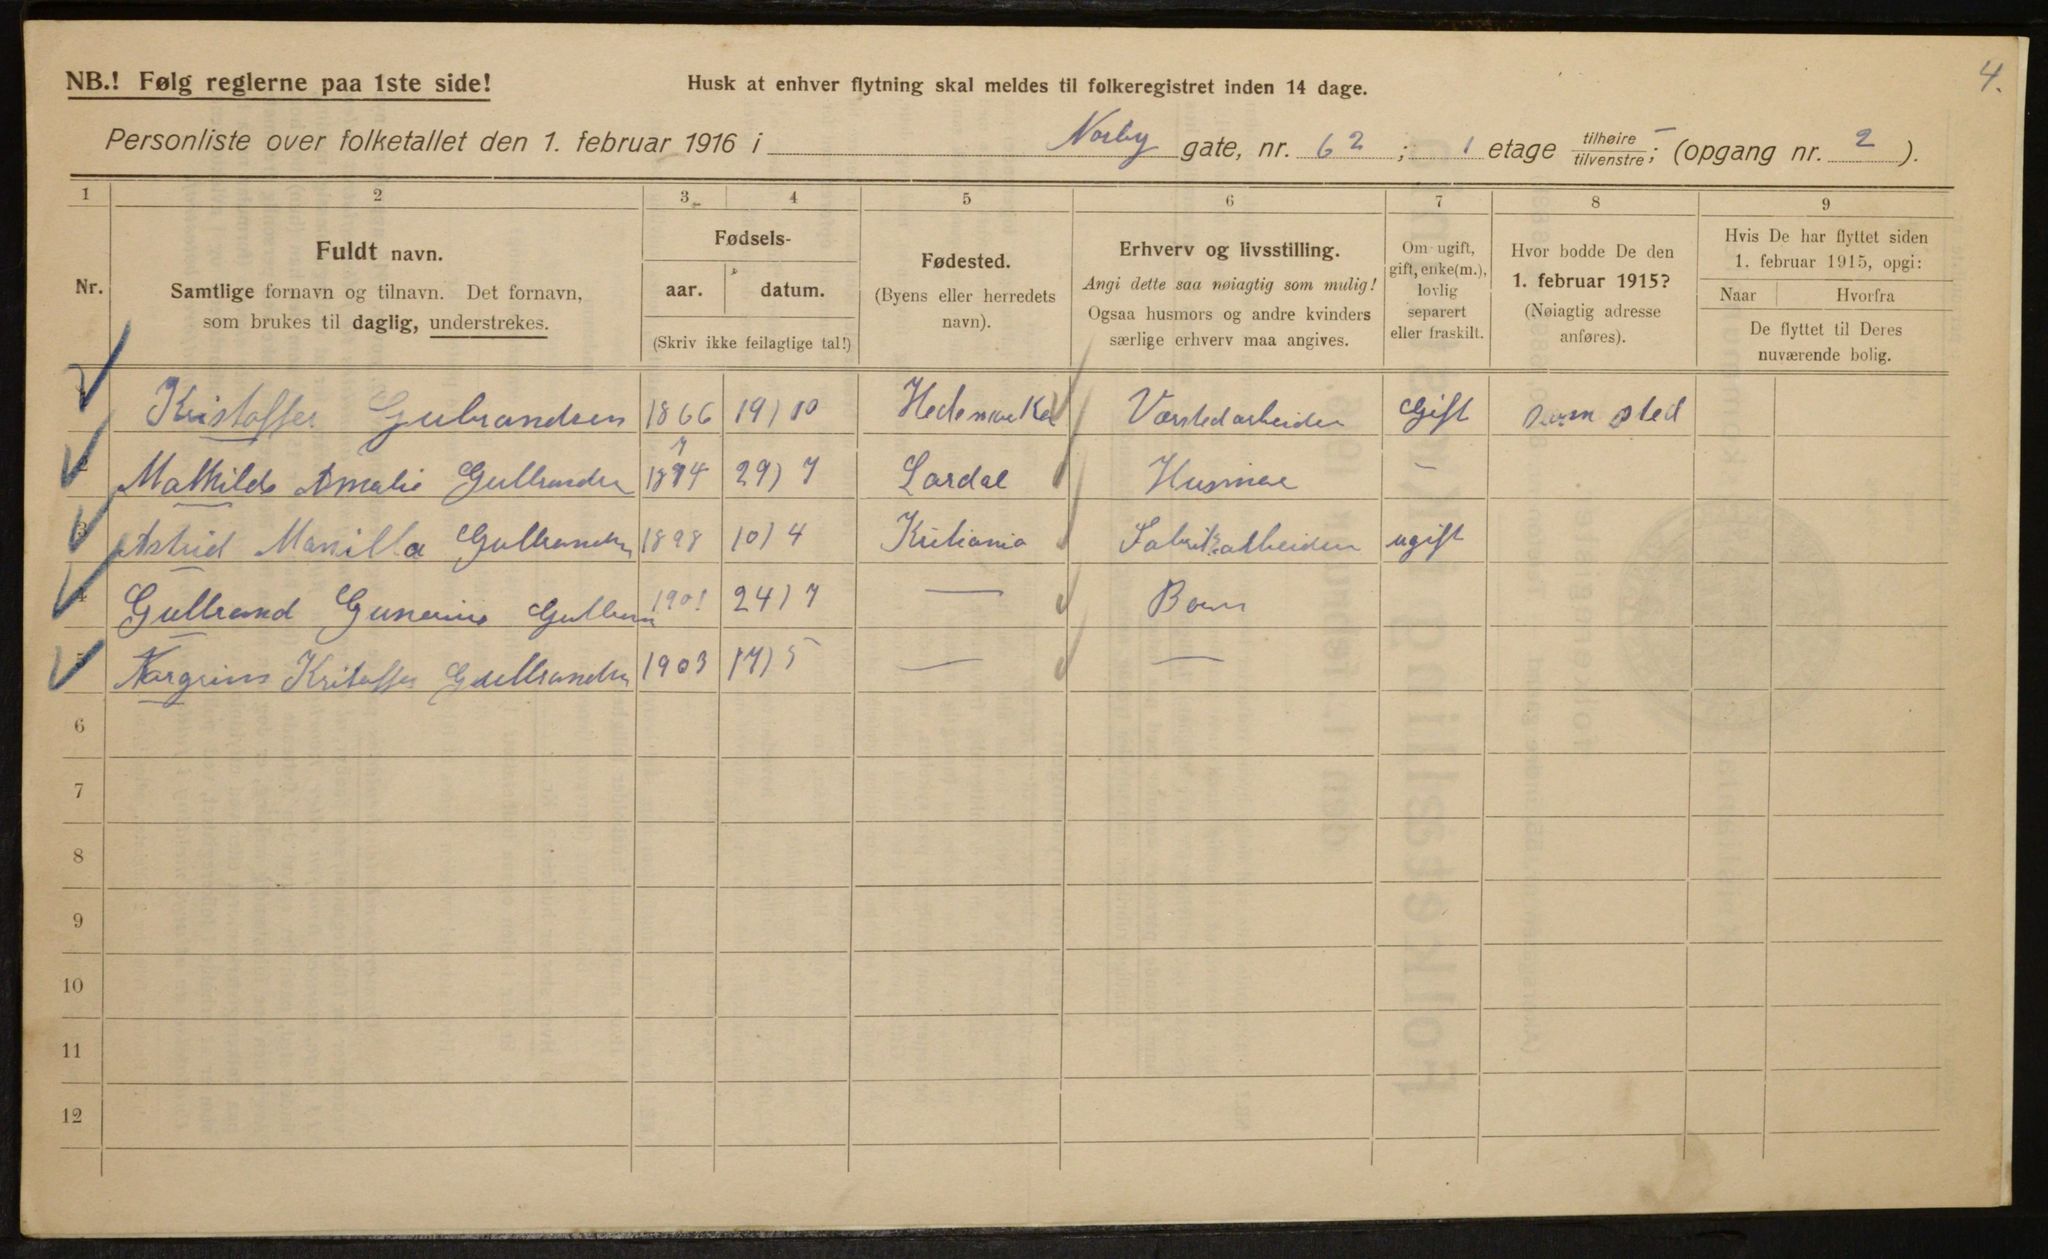 4.
NB.! Følg reglerne paa 1ste side!
Husk at enhver flytning skal meldes til folkeregistret inden 14 dage.
Personliste over folketallet den 1. februar 1916 i Norby gate, nr. 62 ; 1 etage tilhøire/tilvenstre ; (opgang nr. 2 ).
1 2 3 4 5 6 7 8 9
Nr.
Fuldt navn.
Samtlige fornavn og tilnavn. Det fornavn,
som brukes til daglig, understrekes.
Fødsels-
aar. datum.
(Skriv ikke feilagtige tal!)
Fødested.
(Byens eller herredets
navn).
Erhverv og livsstilling.
Angi dette saa nøiagtig som mulig!
Ogsaa husmors og andre kvinders
særlige erhverv maa angives.
Om ugift,
gift, enke(m.),
lovlig
separert
eller fraskilt.
Hvor bodde De den
1. februar 1915?
(Nøiagtig adresse
anføres).
Hvis De har flyttet siden
1. februar 1915, opgi:
Naar Hvorfra
De flyttet til Deres
nuværende bolig.
1 Kristoffer Gubrandsen 1866 19/10 Hedemarken Værstedarbeider Gift sam sted
2 Mathilde Amalie Gulbrandsen 1874 29/7 Lardal Husmor -
3 Astrid Gulbrandsen 1898 10/4 Kristiania Fabrikarbeider ugift
4 Gulbrand Gunerius 1901 24/7 — Barn
5 Kristoffer Gulbrandsen 1903 17/5 — —
6
7
8
9
10
11
12